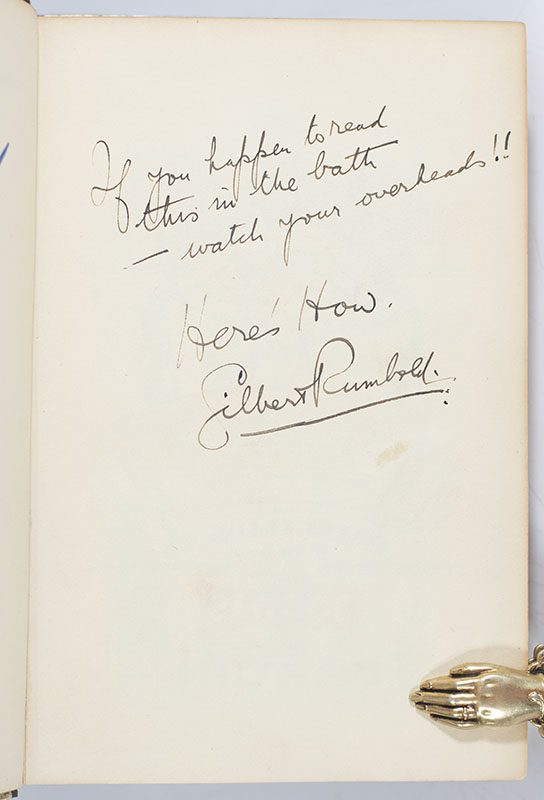 If you happen to read
this in the bath
– watch your overheads!!
Here's How.
Gilbert Rumbold.